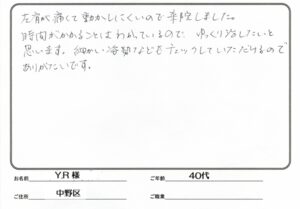 左肩が痛くて動かしにくいので来院しました。
時間がかかることはわかっているので、ゆっくり治したいと
思います。細かい姿勢などもチェックしていただけるので
ありがたいです。
お名前 Y.R 様 ご年齢 40代
ご住所 中野区 ご職業